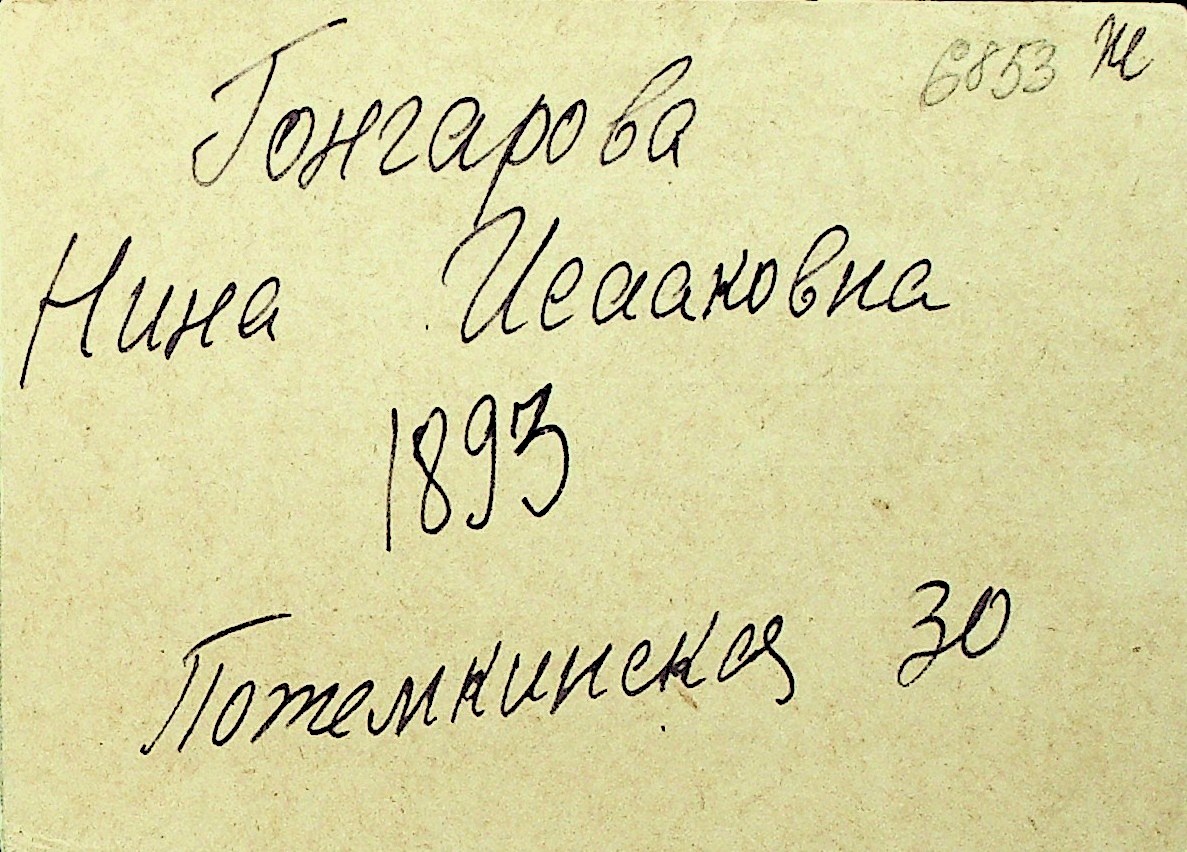 6853 Ж
Гончарова
Нина Исааковна
1893
Потемкинская 30